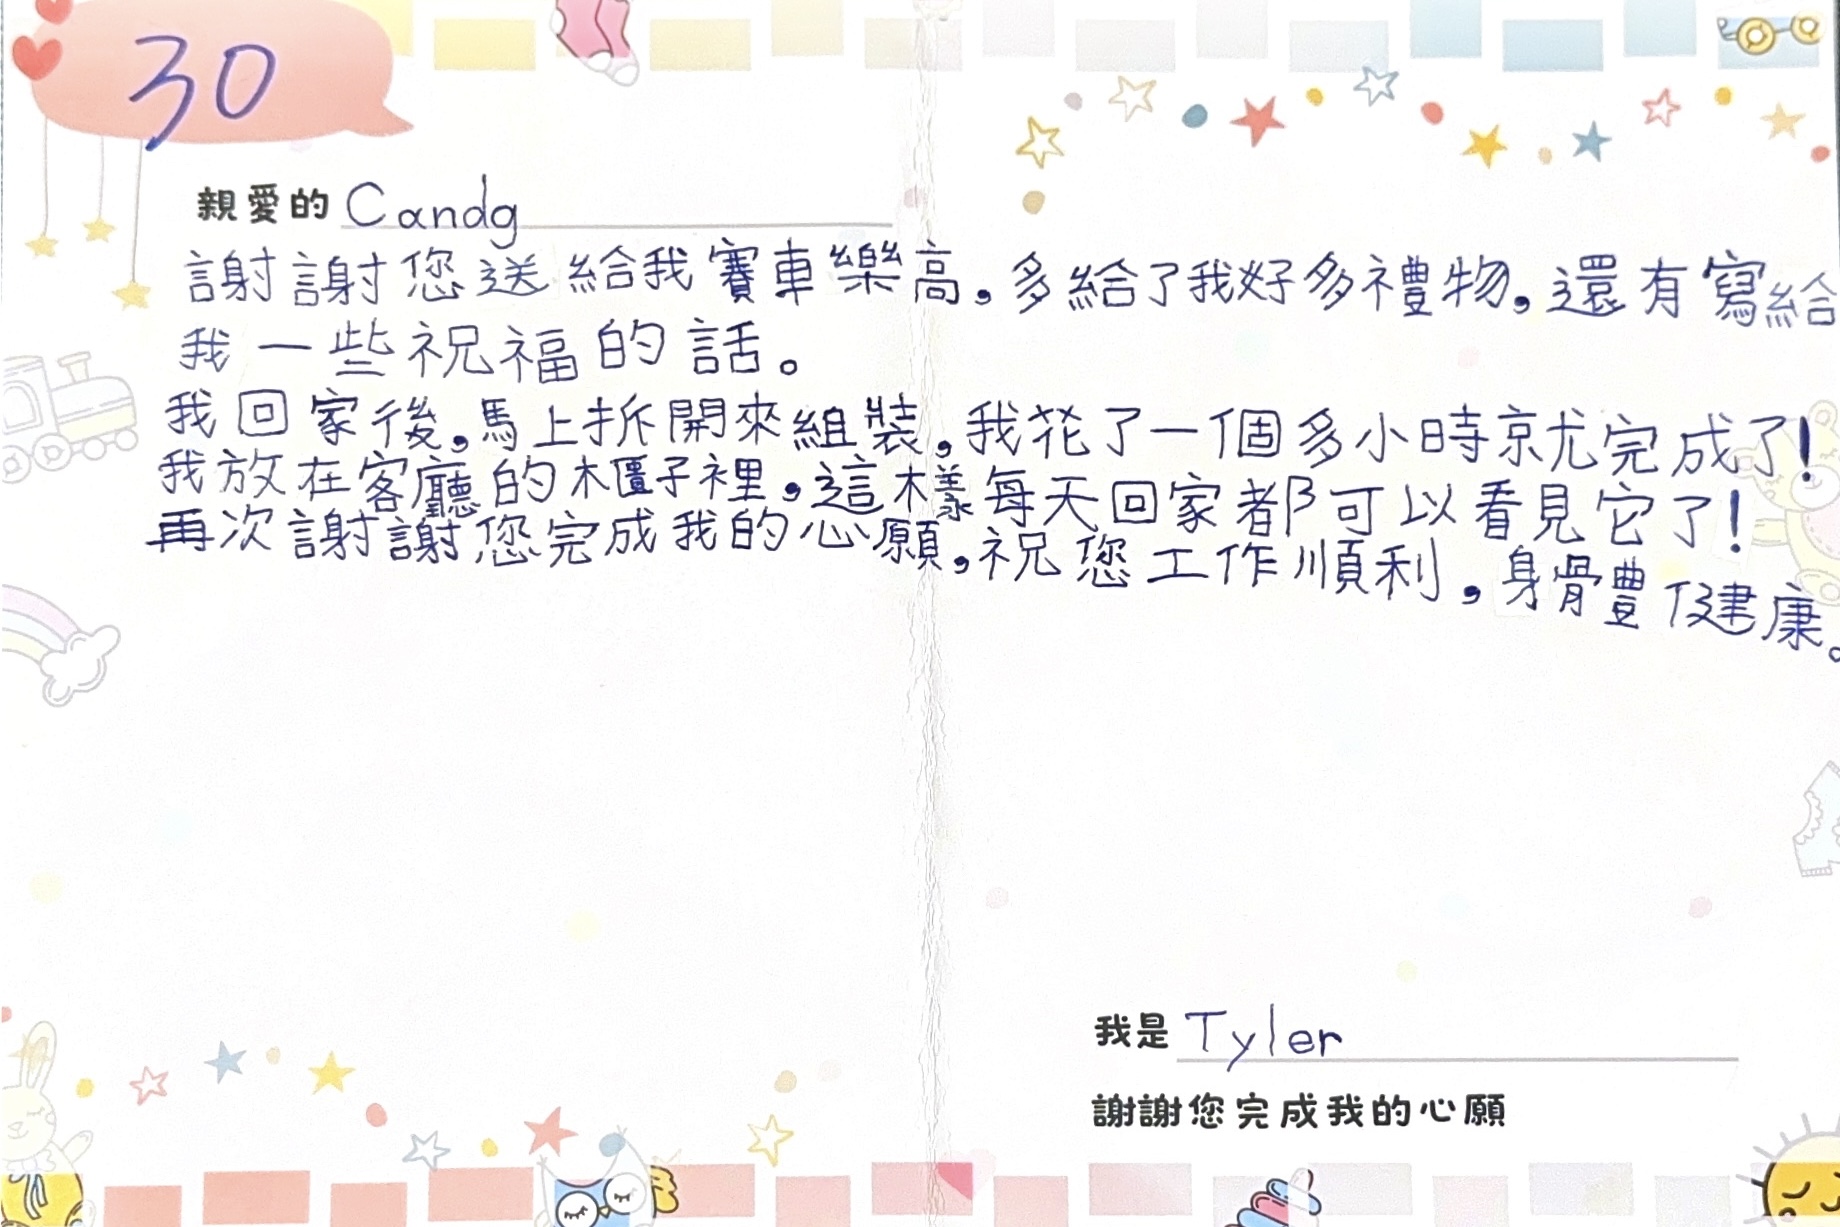 30
親愛的 Candg
謝謝您送給我賽車樂高,多給了我好多禮物,還有寫給
我一些祝福的話。
我回家後,馬上拆開來組裝,我花了一個多小時就完成了!
我放在客廳的木櫃子裡,這樣每天回家都可以看見它了!
再次謝謝您完成我的心願,祝您工作順利,身體健康。
我是 Tyler
謝謝您完成我的心願